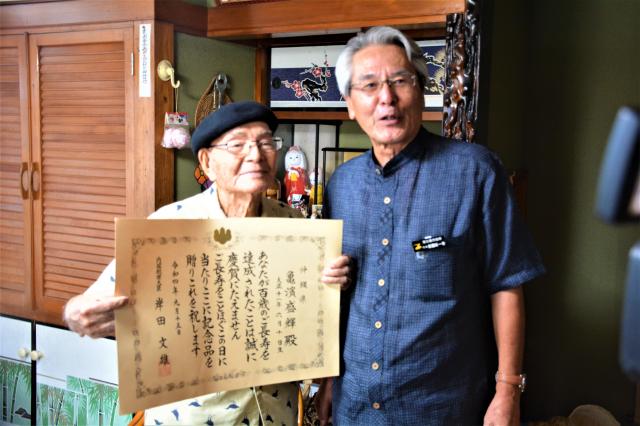 沖縄県
亀濱盛輝殿
大正十一年六月十日生
あなたが百歳のご長寿を
達成されたことは誠に
慶賀にたえません
ご長寿をことほぐこの日に
当たりここに記念品を
贈りこれを祝します
令和四年九月十五日
内閣総理大臣 岸田文雄